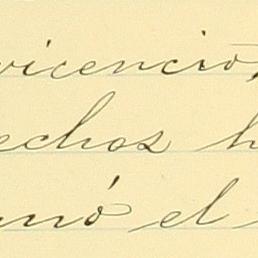 vicencio,
echos h
nó el